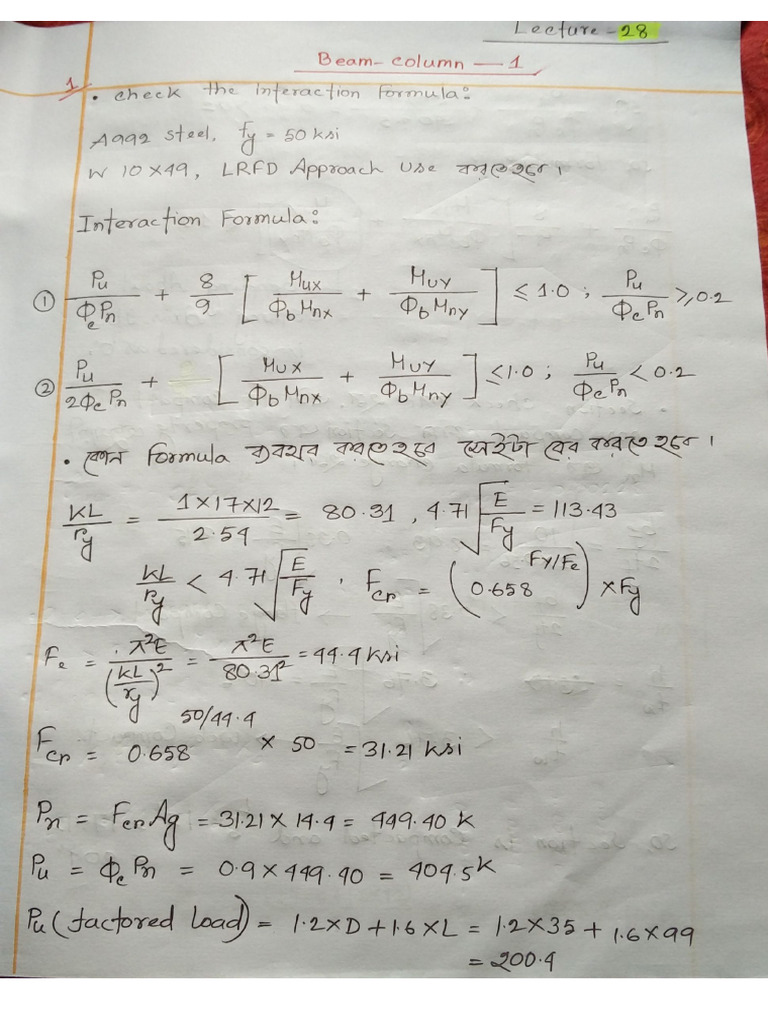 Lecture-28
Beam-column — 1
1
• check the interaction formula:
A992 steel, fy = 50 ksi
W 10×49, LRFD Approach use করতে হবে।
Interaction Formula:
① Pu/ΦcPn + 8/9 [Mux/ΦbMnx + Muy/ΦbMny] ≤ 1.0 ; Pu/ΦcPn ≥ 0.2
② Pu/2ΦcPn + [Mux/ΦbMnx + Muy/ΦbMny] ≤ 1.0 ; Pu/ΦcPn < 0.2
• কোন formula ব্যবহার করতে হবে সেইটা বের করতে হবে।
KL/ry = 1×17×12/2.54 = 80.31, 4.71√(E/Fy) = 113.43
KL/ry < 4.71√(E/Fy) , Fcr = (0.658^(Fy/Fe)) × Fy
Fe = π²E/(KL/ry)² = π²E/80.31² = 44.4 ksi
Fcr = 0.658^(50/44.4) × 50 = 31.21 ksi
Pn = Fcr Ag = 31.21 × 14.4 = 449.40 K
Pu = Φc Pn = 0.9 × 449.40 = 404.5 K
Pu (factored load) = 1.2×D + 1.6×L = 1.2×35 + 1.6×99
= 200.4